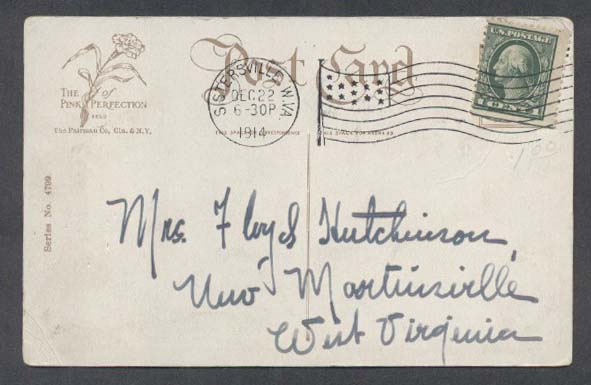 Post Card
U.S. POSTAGE
THE PINK of PERFECTION
The Fairman Co., Cin. & N.Y.
SISTERSVILLE W.VA.
DEC 22
6-30P
1914
THIS SPACE FOR CORRESPONDENCE
Series No. 4709.
Mrs. Floyd Hutchinson,
New Martinsville
West Virginia
1 00